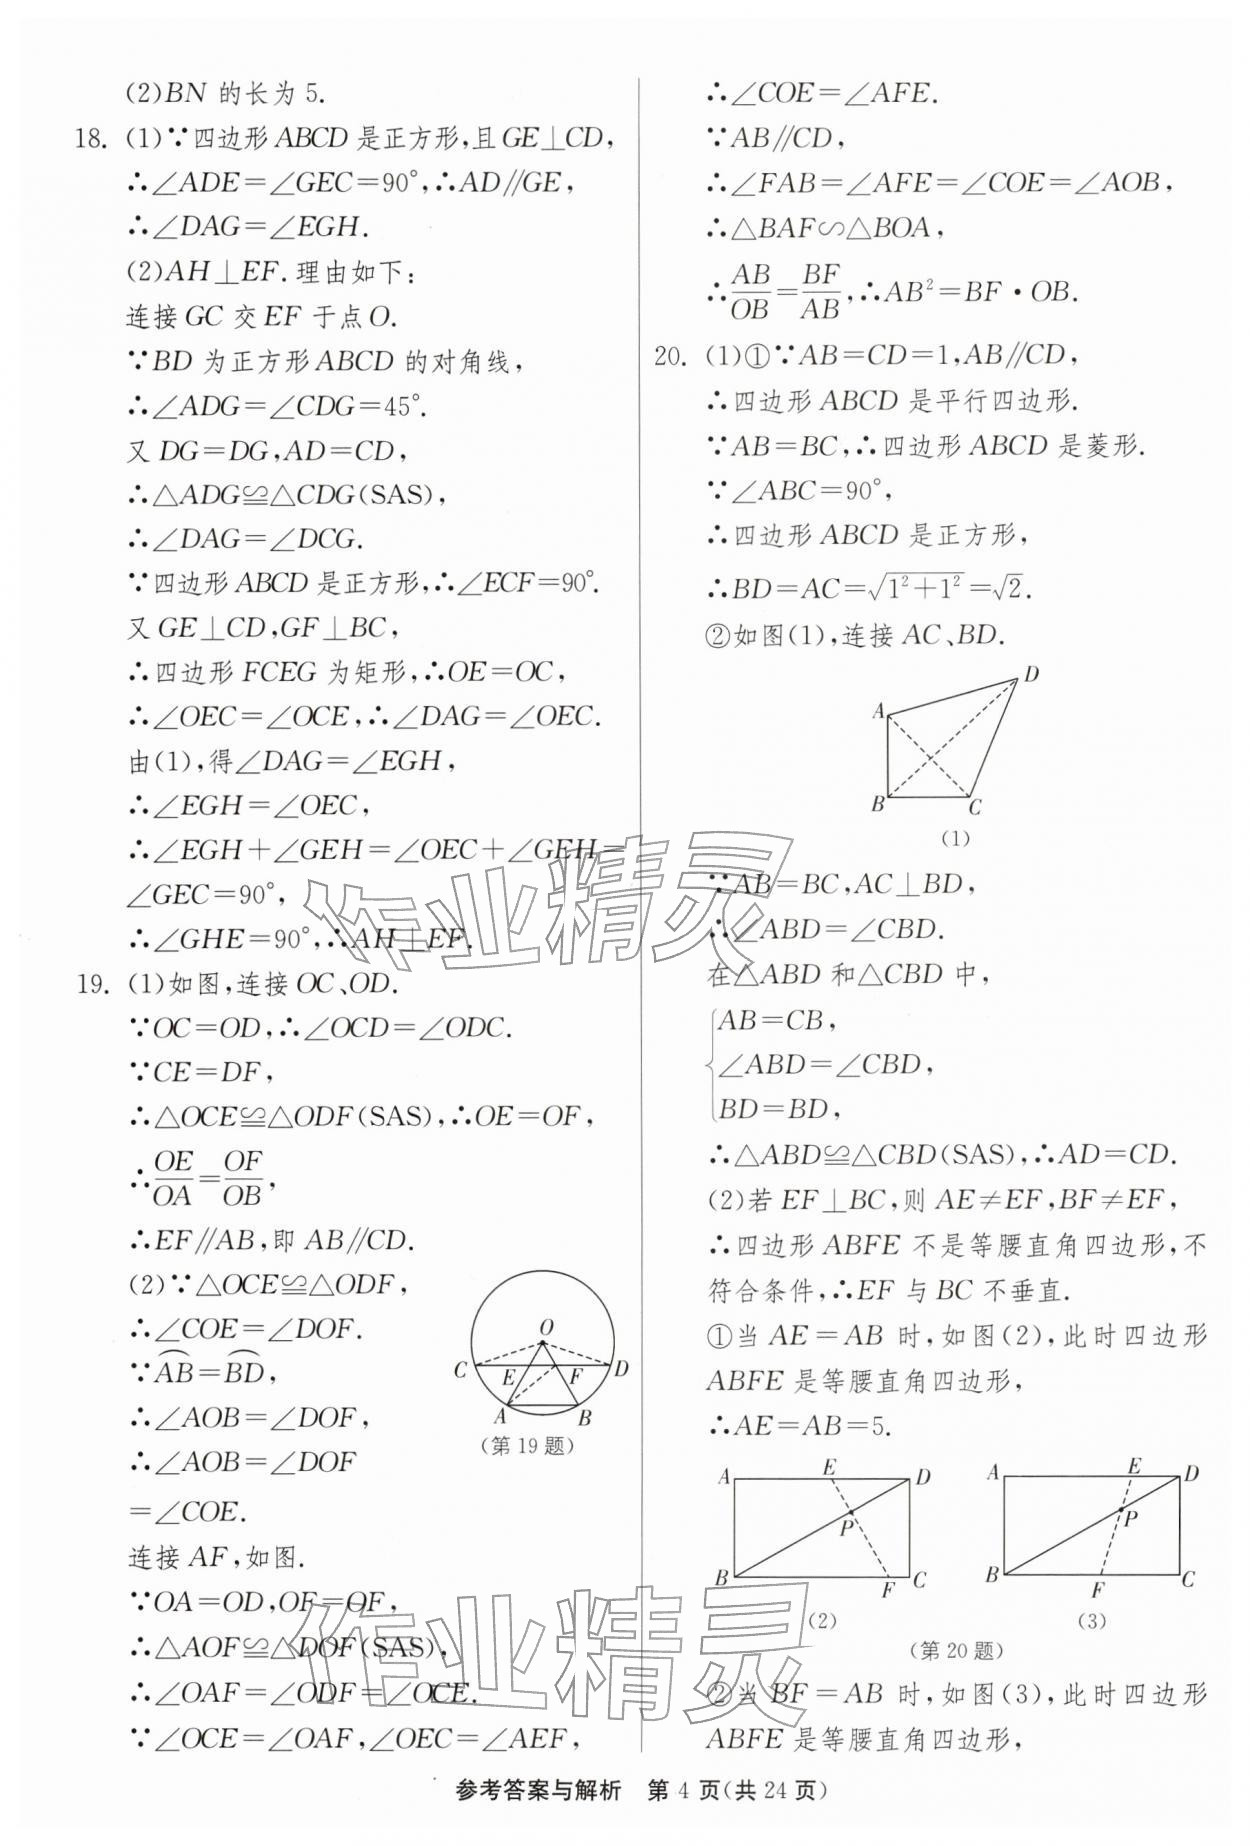 (2)BN 的长为 5.
18. (1)∵四边形 ABCD 是正方形,且 GE⊥CD,
∴∠ADE=∠GEC=90°,∴AD∥GE,
∴∠DAG=∠EGH.
(2)AH⊥EF.理由如下:
连接 GC 交 EF 于点 O.
∵BD 为正方形 ABCD 的对角线,
∴∠ADG=∠CDG=45°.
又 DG=DG,AD=CD,
∴△ADG≌△CDG(SAS),
∴∠DAG=∠DCG.
∵四边形 ABCD 是正方形,∴∠ECF=90°.
又 GE⊥CD,GF⊥BC,
∴四边形 FCEG 为矩形,∴OE=OC,
∴∠OEC=∠OCE,∴∠DAG=∠OEC.
由(1),得∠DAG=∠EGH,
∴∠EGH=∠OEC,
∴∠EGH+∠GEH=∠OEC+∠GEH=
∠GEC=90°,
∴∠GHE=90°,∴AH⊥EF.
19. (1)如图,连接 OC、OD.
∵OC=OD,∴∠OCD=∠ODC.
∵CE=DF,
∴△OCE≌△ODF(SAS),∴OE=OF,
∴OE/OA=OF/OB,
∴EF∥AB,即 AB∥CD.
(2)∵△OCE≌△ODF,
∴∠COE=∠DOF.
∵⌒AB=⌒BD,
∴∠AOB=∠DOF,
∴∠AOB=∠DOF
=∠COE.
O
C E F D
A B
(第 19 题)
连接 AF,如图.
∵OA=OD,OF=OF,
∴△AOF≌△DOF(SAS),
∴∠OAF=∠ODF=∠OCE.
∵∠OCE=∠OAF,∠OEC=∠AEF,
∴∠COE=∠AFE.
∵AB∥CD,
∴∠FAB=∠AFE=∠COE=∠AOB,
∴△BAF∽△BOA,
∴AB/OB=BF/AB,∴AB²=BF·OB.
20. (1)①∵AB=CD=1,AB∥CD,
∴四边形 ABCD 是平行四边形.
∵AB=BC,∴四边形 ABCD 是菱形.
∵∠ABC=90°,
∴四边形 ABCD 是正方形,
∴BD=AC=√(1²+1²)=√2.
②如图(1),连接 AC、BD.
D
A
B C
(1)
∵AB=BC,AC⊥BD,
∴∠ABD=∠CBD.
在△ABD 和△CBD 中,
AB=CB,
∠ABD=∠CBD,
BD=BD,
∴△ABD≌△CBD(SAS),∴AD=CD.
(2)若 EF⊥BC,则 AE≠EF,BF≠EF,
∴四边形 ABFE 不是等腰直角四边形,不
符合条件,∴EF 与 BC 不垂直.
①当 AE=AB 时,如图(2),此时四边形
ABFE 是等腰直角四边形,
∴AE=AB=5.
A E D
P
B F C
(2)
A E D
P
B F C
(3)
(第 20 题)
②当 BF=AB 时,如图(3),此时四边形
ABFE 是等腰直角四边形,
作业精灵
作业精灵
参考答案与解析 第 4 页(共 24 页)